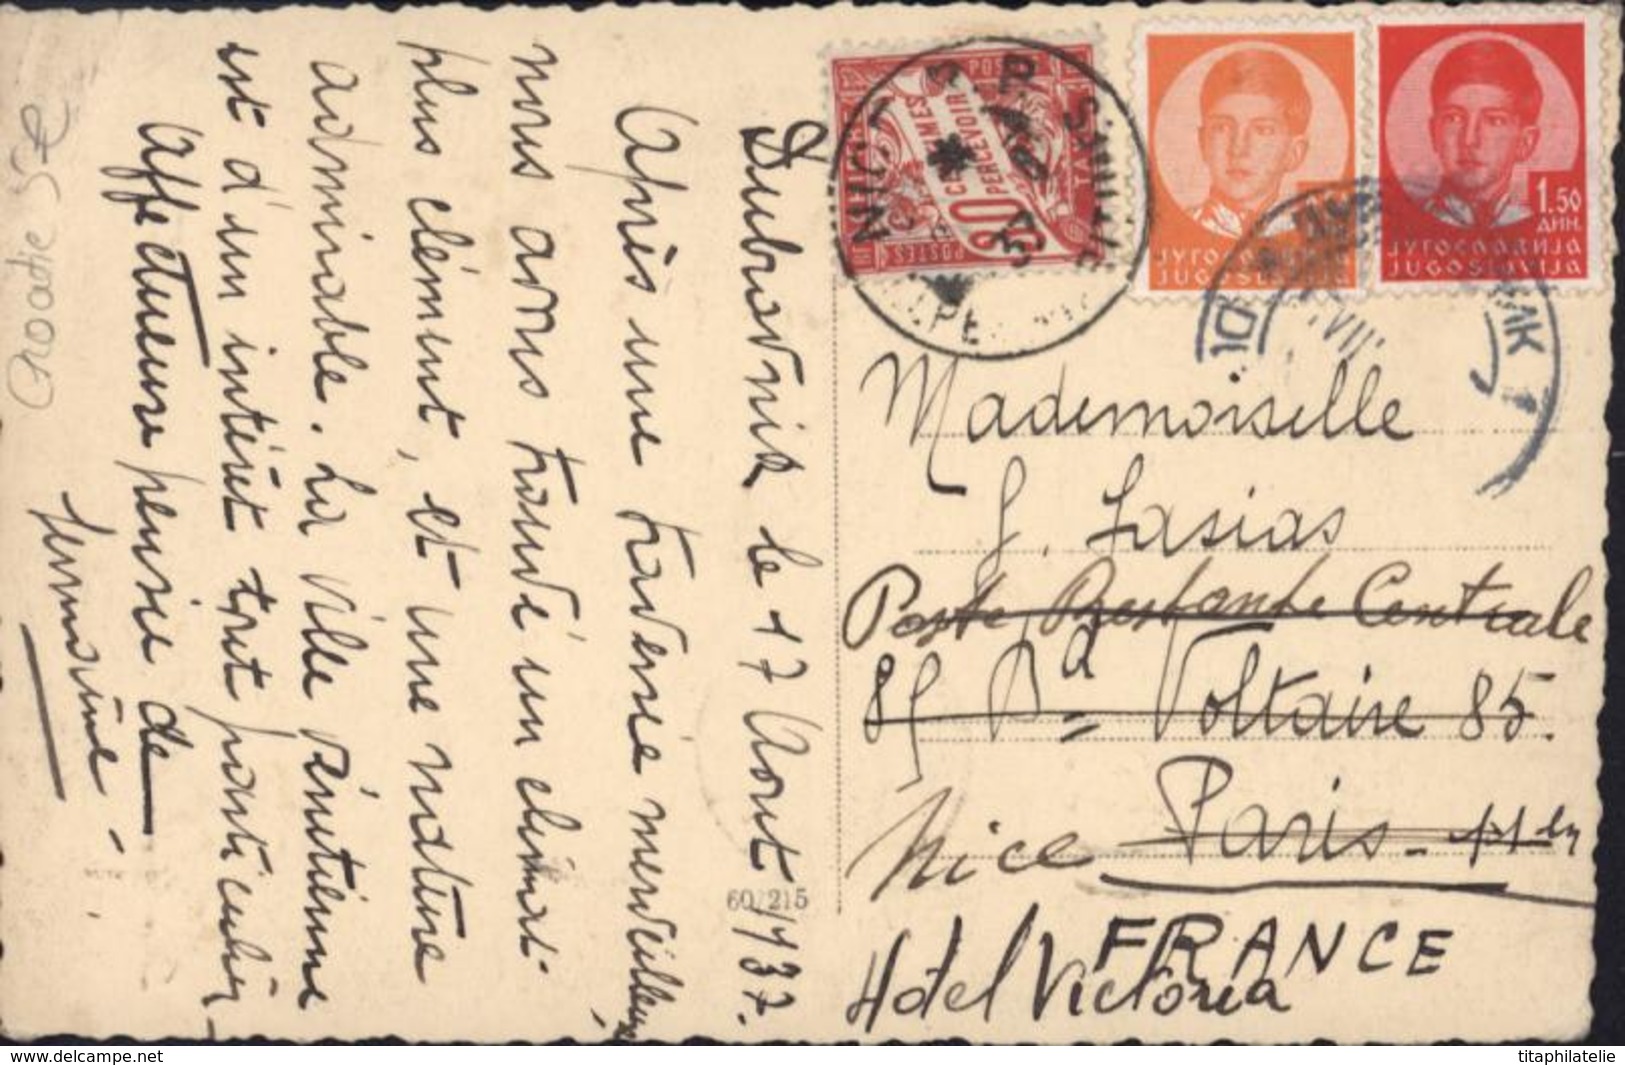 Dubrovnik le 17 Aout 1937.
Après une traversée merveilleuse,
nous avons trouvé un climat
plus clément, et une nature
admirable. La ville vénitienne
est d'un intérêt tout particulier
Affectueuse pensée de
Croatie 5€
60/215
TAXE
30
CENTIMES
A PERCEVOIR
POSTES
NICE
37
ЈУГОСЛАВИЈА
JUGOSLAVIJA
1.50
ДИН.
ЈУГОСЛАВИЈА
JUGOSLAVIJA
Mademoiselle
G. Lasias
Poste Restante Centrale
85 Bd Voltaire 85.
Nice Paris
FRANCE
Hôtel Victoria
www.delcampe.net
titaphilatelie